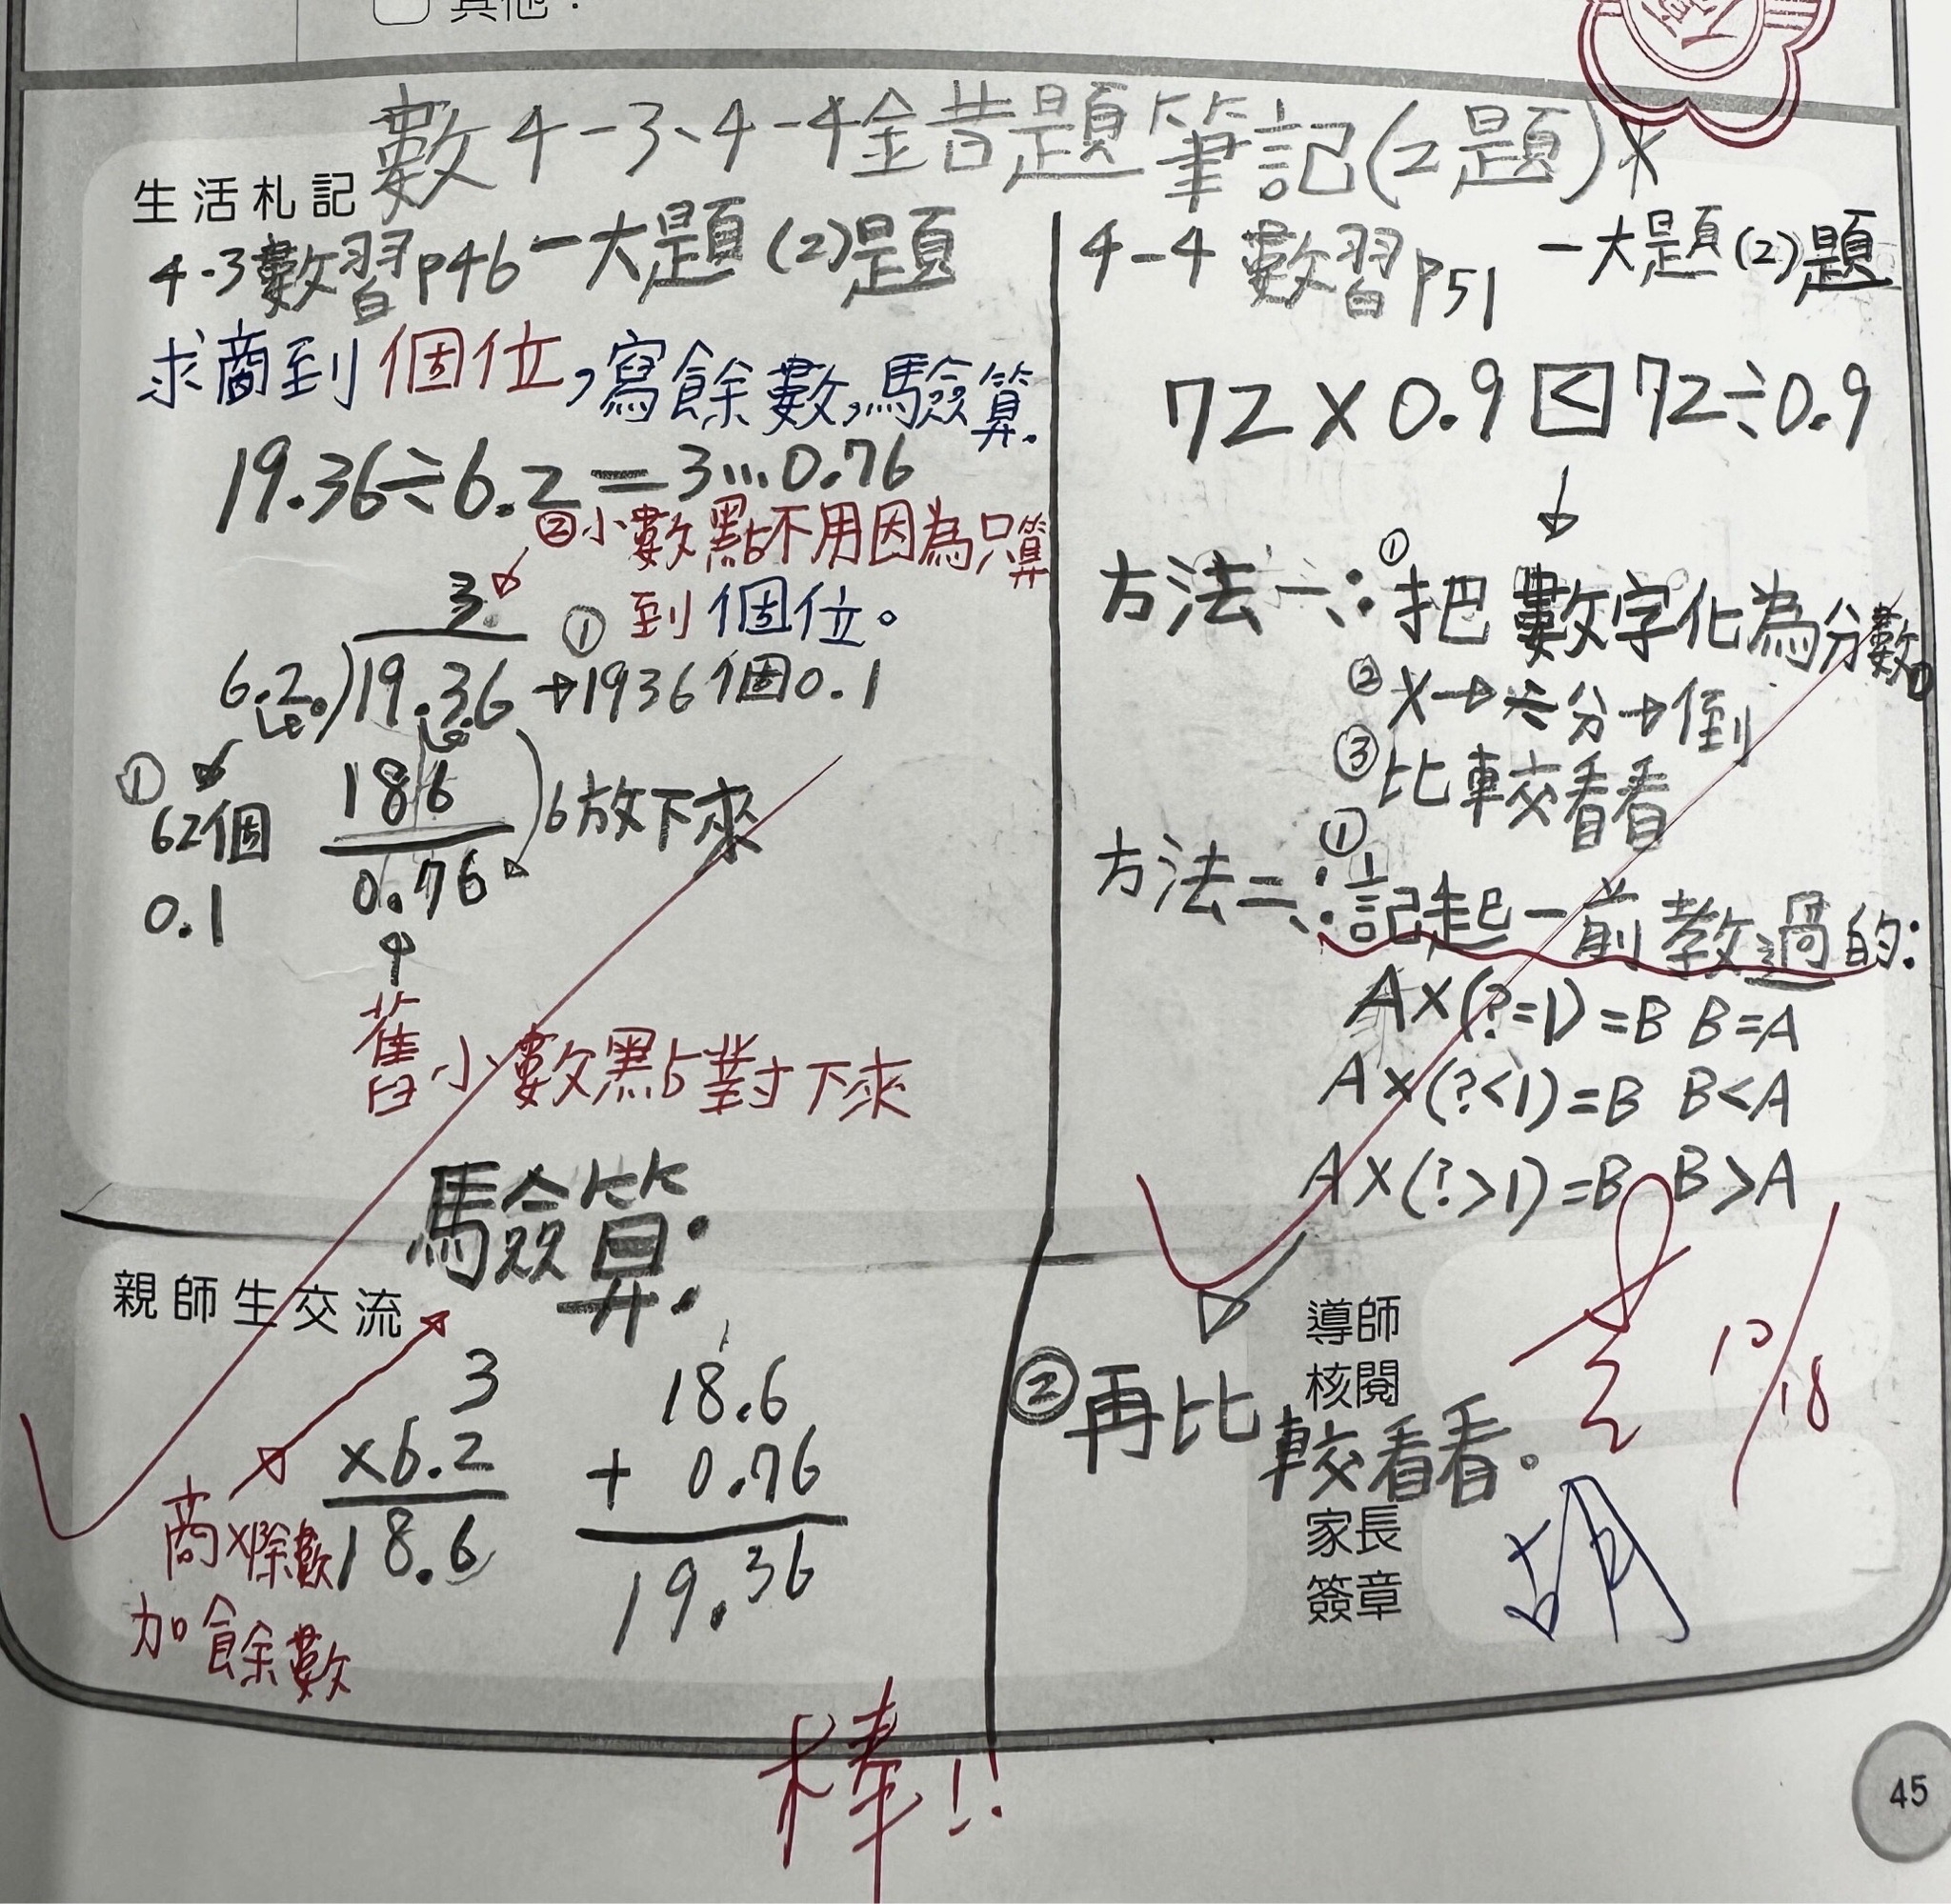 其他：
數4-3、4-4錯題筆記(2題)
生活札記
4-3數習p46一大題(2)題
求商到個位,寫餘數,驗算.
19.36÷6.2=3…0.76
②小數點不用因為只算
到個位。
3.
6.2.)19.36→1936個0.1
①
①
62個
0.1
186
6放下來
0.76
舊小數點對下來
驗算:
親師生交流
3
×6.2
18.6
18.6
+ 0.76
19.36
商×除數
加餘數
4-4數習p51 一大題(2)題
72×0.9<72÷0.9
方法一:①把數字化為分數。
②×→ 分→倒
③比較看看
方法二:①記起一前教過的:
A×(?=1)=B B=A
A×(?<1)=B B<A
A×(?>1)=B B>A
②再比較看看。
導師
核閱
10/18
家長
簽章
胡
棒!!
45